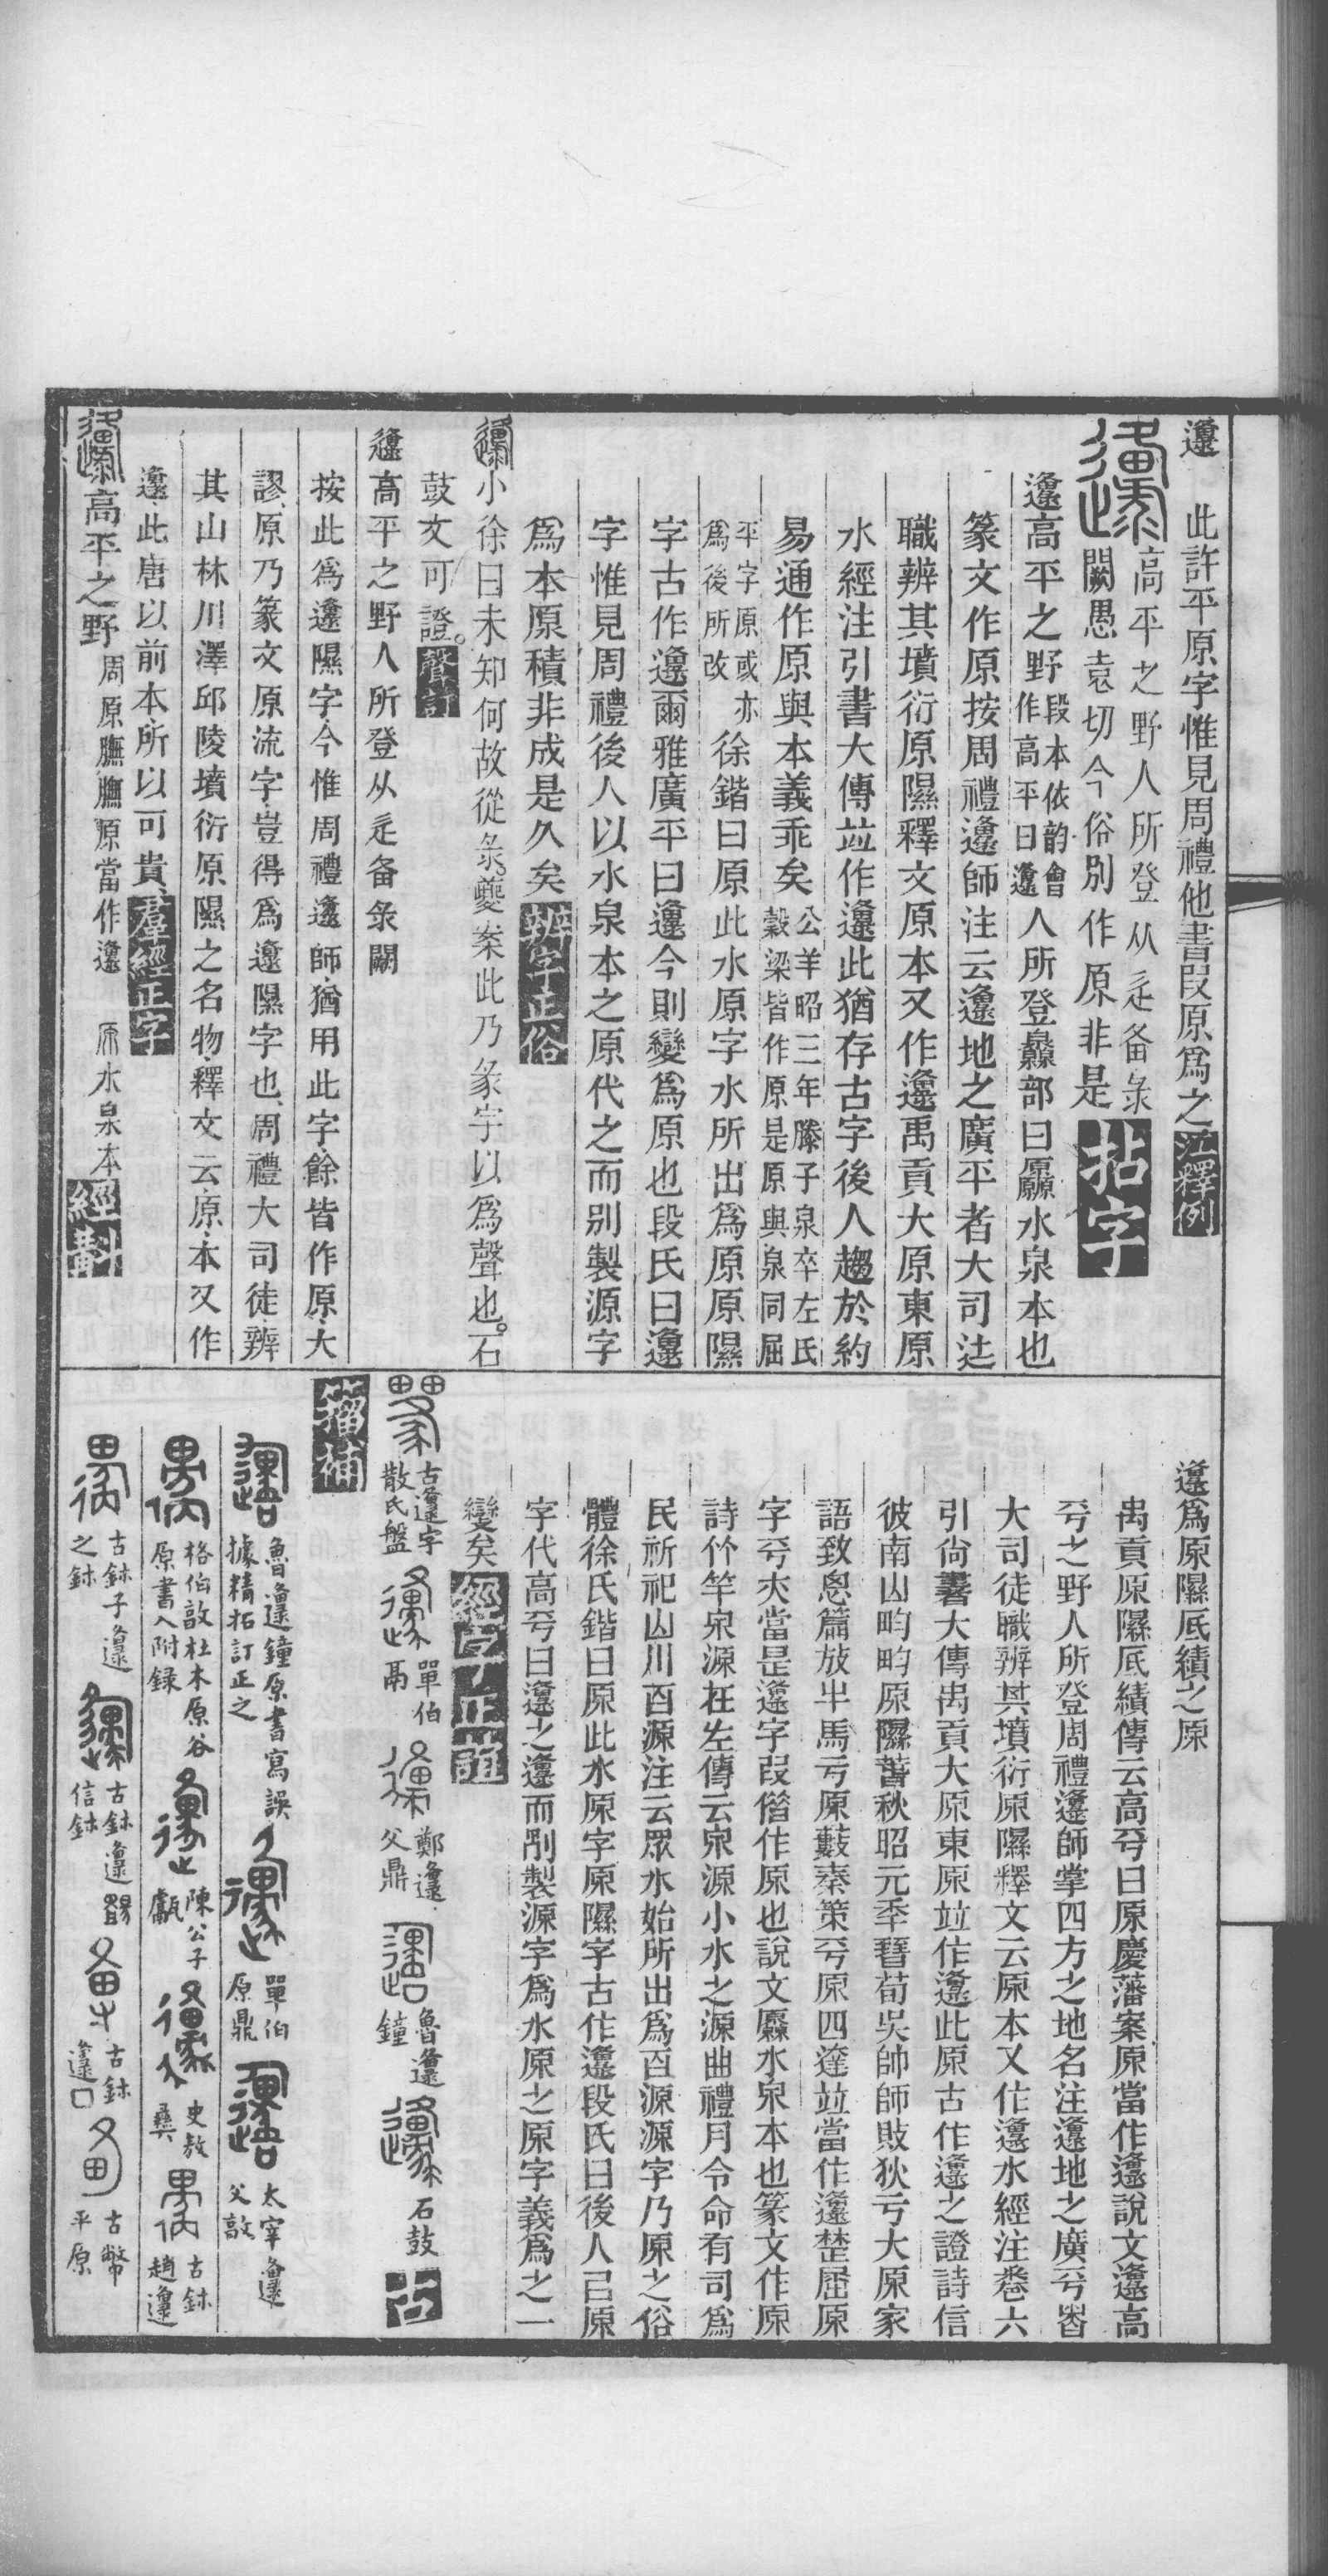 邍　此許平原字惟見周禮他書叚原爲之江釋例
高平之野人所登从辵备彔
闕愚袁切今俗別作原非是拈字
邍高平之野段本依韵會作高平曰邍人所登灥部曰厵水泉本也
篆文作原按周禮邍師注云邍地之廣平者大司徒
職辨其墳衍原隰釋文原本又作邍禹貢大原東原
水經注引書大傳竝作邍此猶存古字後人趨於約
易通作原與本義乖矣公羊昭三年滕子泉卒左氏穀梁皆作原是原與泉同屈
平字原或亦爲後所改徐鍇曰原此水原字水所出爲原原隰
字古作邍爾雅廣平曰邍今則變爲原也段氏曰邍
字惟見周禮後人以水泉本之原代之而別製源字
爲本原積非成是久矣辨字正俗
小徐曰未知何故從彔夔案此乃彖字以爲聲也石
鼓文可證聲訂
邍高平之野人所登从辵备彔闕
按此爲邍隰字今惟周禮邍師猶用此字餘皆作原大
謬原乃篆文原流字豈得爲邍隰字也周禮大司徒辨
其山林川澤邱陵墳衍原隰之名物釋文云原本又作
邍此唐以前本所以可貴羣經正字
高平之野周原膴膴原當作邍　原水泉本經斠
邍爲原隰厎績之原
禹貢原隰厎績傳云高平曰原慶藩案原當作邍說文邍高
平之野人所登周禮邍師掌四方之地名注邍地之廣平者
大司徒職辨其墳衍原隰釋文云原本又作邍水經注卷六
引尙書大傳禹貢大原東原竝作邍此原古作邍之證詩信
彼南山畇畇原隰春秋昭元年晉荀吳帥師敗狄于大原家
語致思篇放牛馬于原藪秦策平原四達竝當作邍楚屈原
字平亦當是邍字叚借作原也說文厵水泉本也篆文作原
詩竹竿泉源在左傳云泉源小水之源曲禮月令命有司爲
民祈祀山川百源注云眾水始所出爲百源源字乃原之俗
體徐氏鍇曰原此水原字原隰字古作邍段氏曰後人㠯原
字代高平曰邍之邍而別製源字爲水原之原字義爲之一
變矣經字正誼
古邍字散氏盤　單伯鬲　鄭邍父鼎　魯邍鐘　石鼓
籀補
魯邍鐘原書寫誤據精拓訂正之　單伯原鼎　太宰邍父敦
格伯敦杜木原谷原書入附錄　陳公子甗　史敖彝　古鉥趙邍
古鉥子邍之鉥　古鉥邍信鉥　古鉥邍□　古幣平原